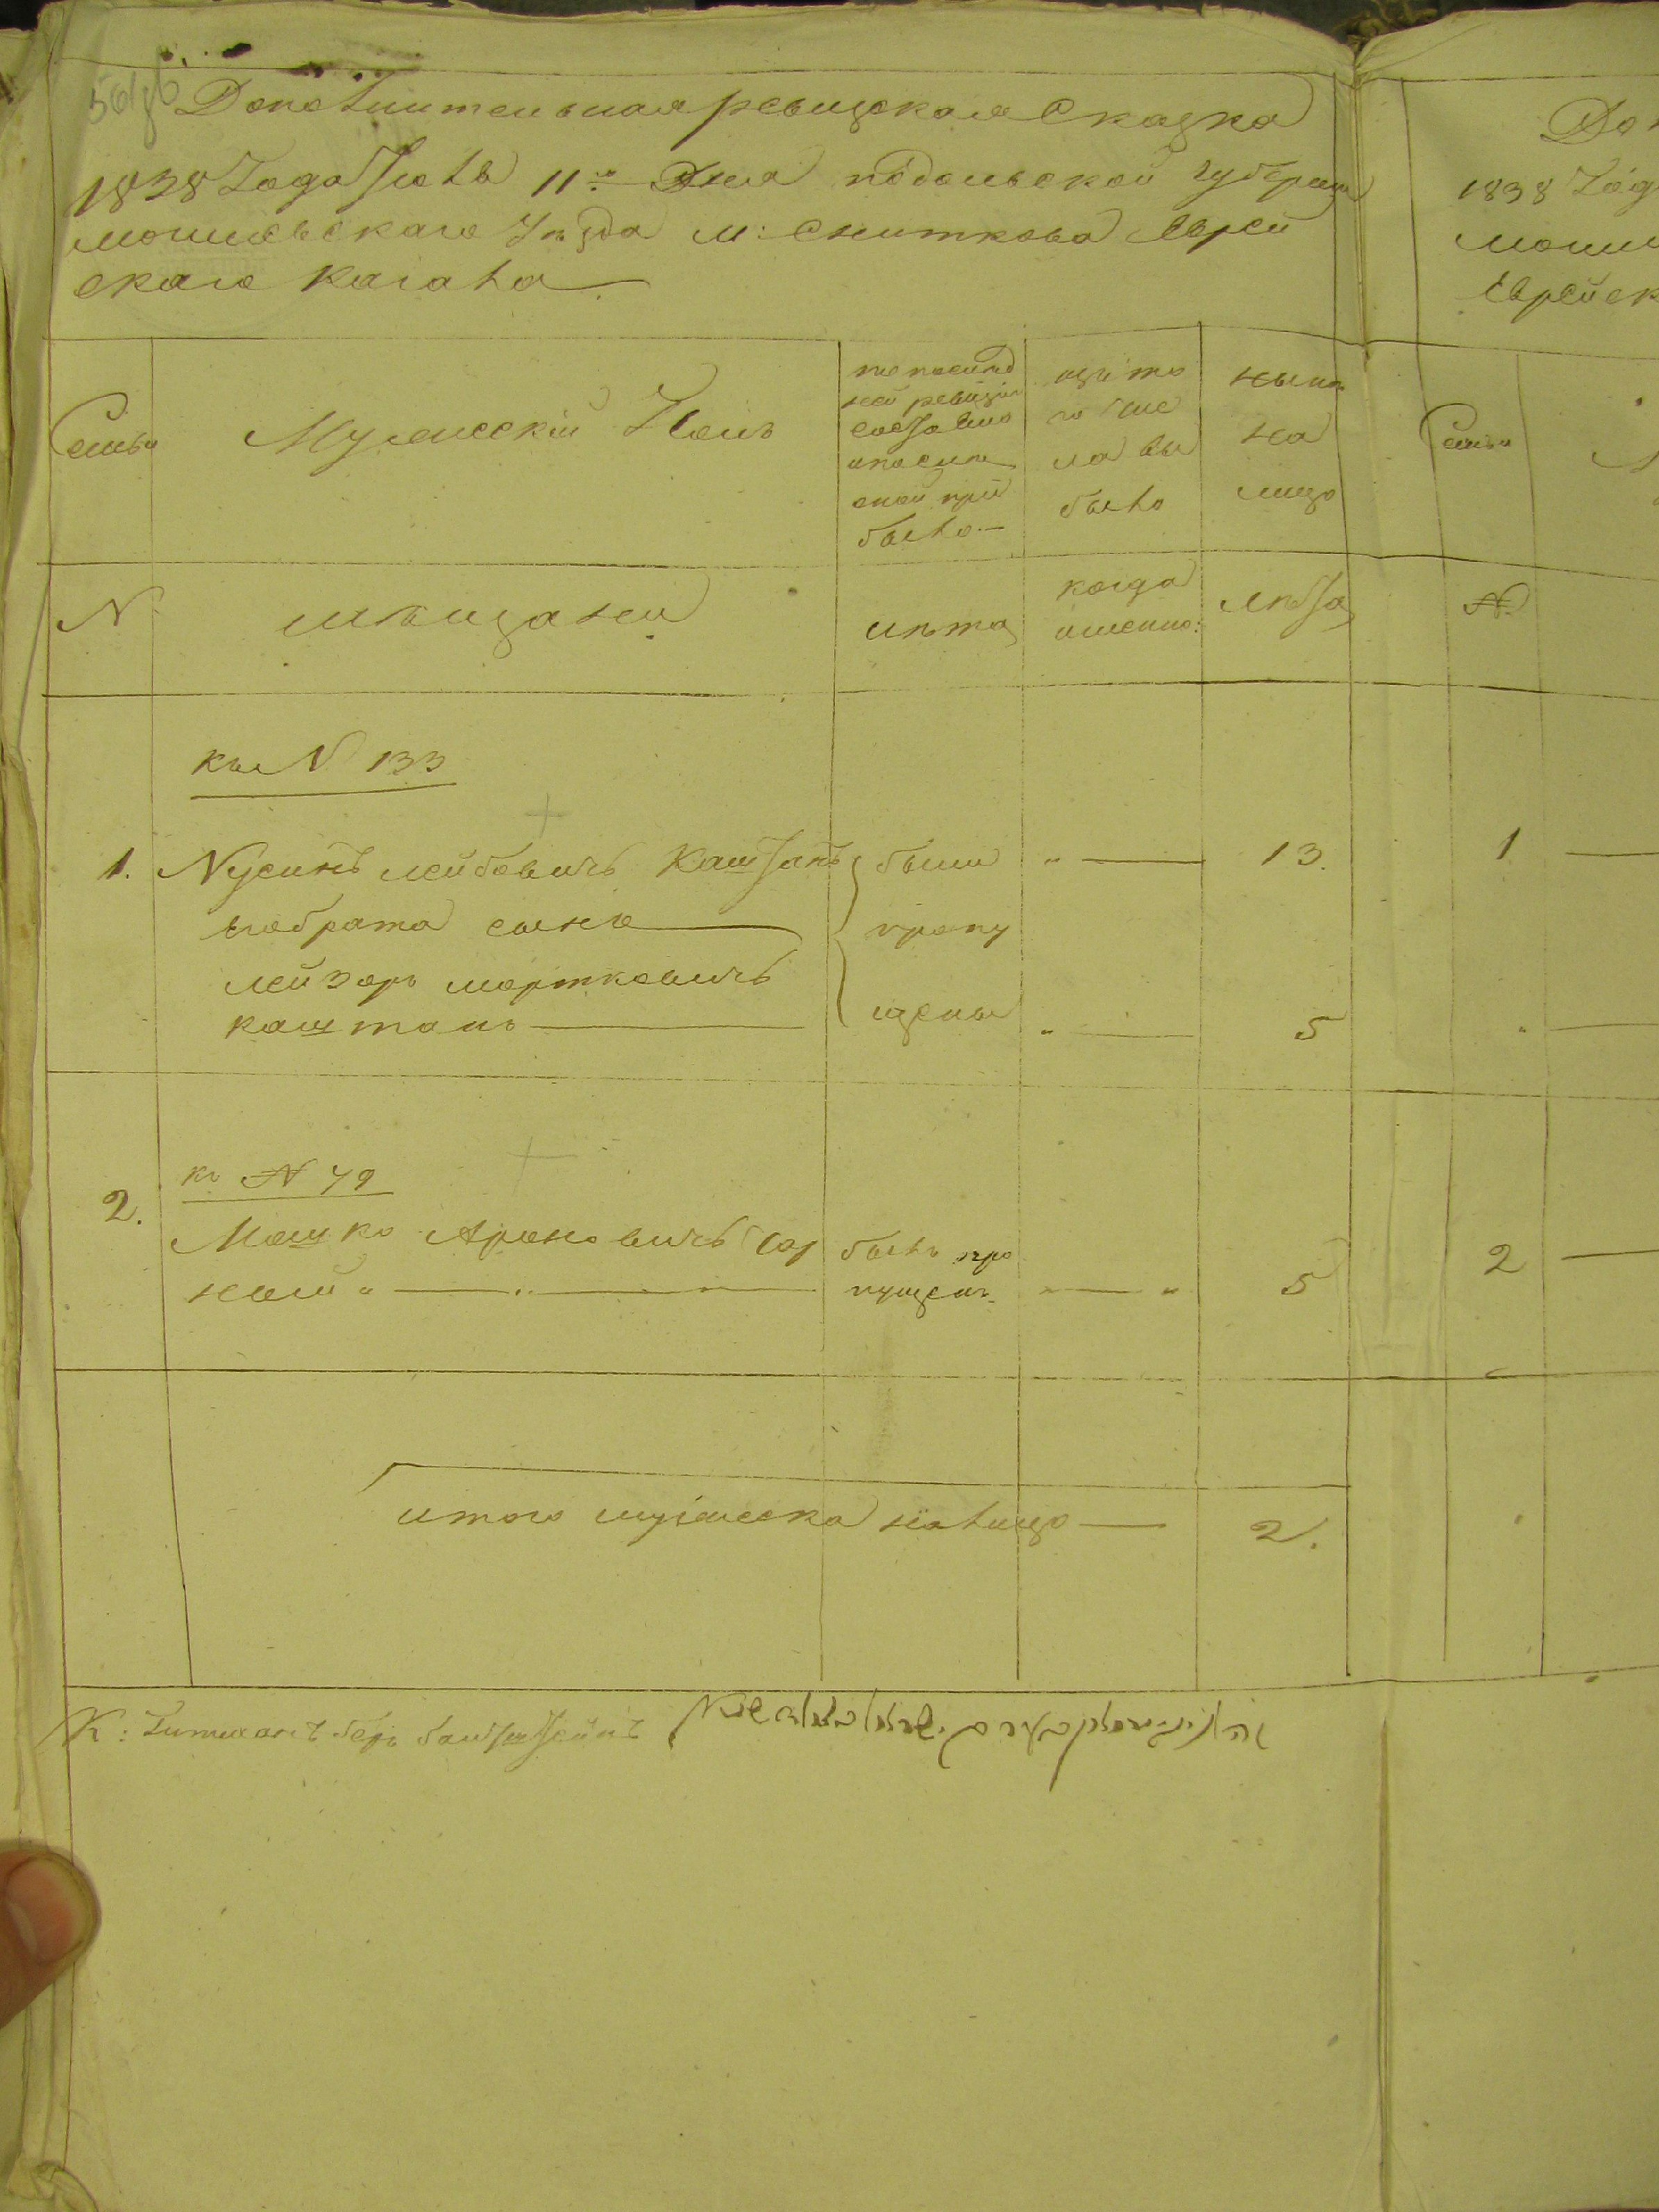 Дополнительная ревизская Сказка
1838 Года Июля 11го Дня подольской губернии
могилевскаго Уѣзда м: Сниткова Еврей
скаго Кагала
Семьи
Мужескій Полъ
по послѣд
ней ревизіи
состояло
и послѣ
оной при
было
изъ то
го чис
ла вы
было
нынѣ
на
лицо
N
мѣщане
лѣта
когда
именно:
лѣта
къ N 133
1. Нусинъ лейбовичъ Каштанъ были " 13.
его брата сынъ пропу
лейзоръ мортковичъ
каштанъ щены " 5
къ N 79
2. Мошко Ароновичъ был про
ный " пущенъ " 5
итого мужеска налицо 2.
К: беръ
До
1838 Год
могил
Еврейск
Семьи
N
1
2